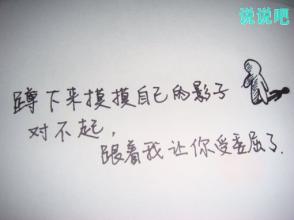 说说吧
蹲下来摸摸自己的影子
对不起，
跟着我让你受委屈了.